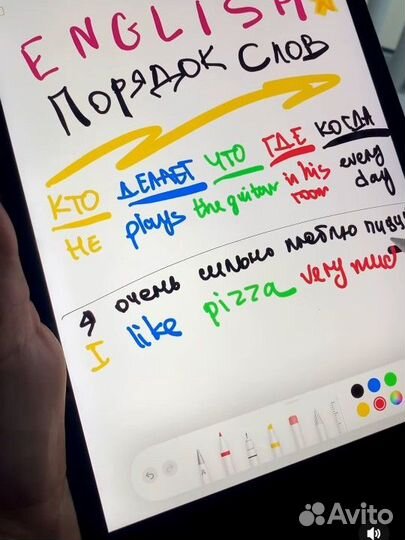 ENGLISH
Порядок слов
КТО ДЕЛАЕТ ЧТО ГДЕ КОГДА
HE plays the guitar in his room every day
Я очень сильно люблю пиццу
I like pizza very much
Avito